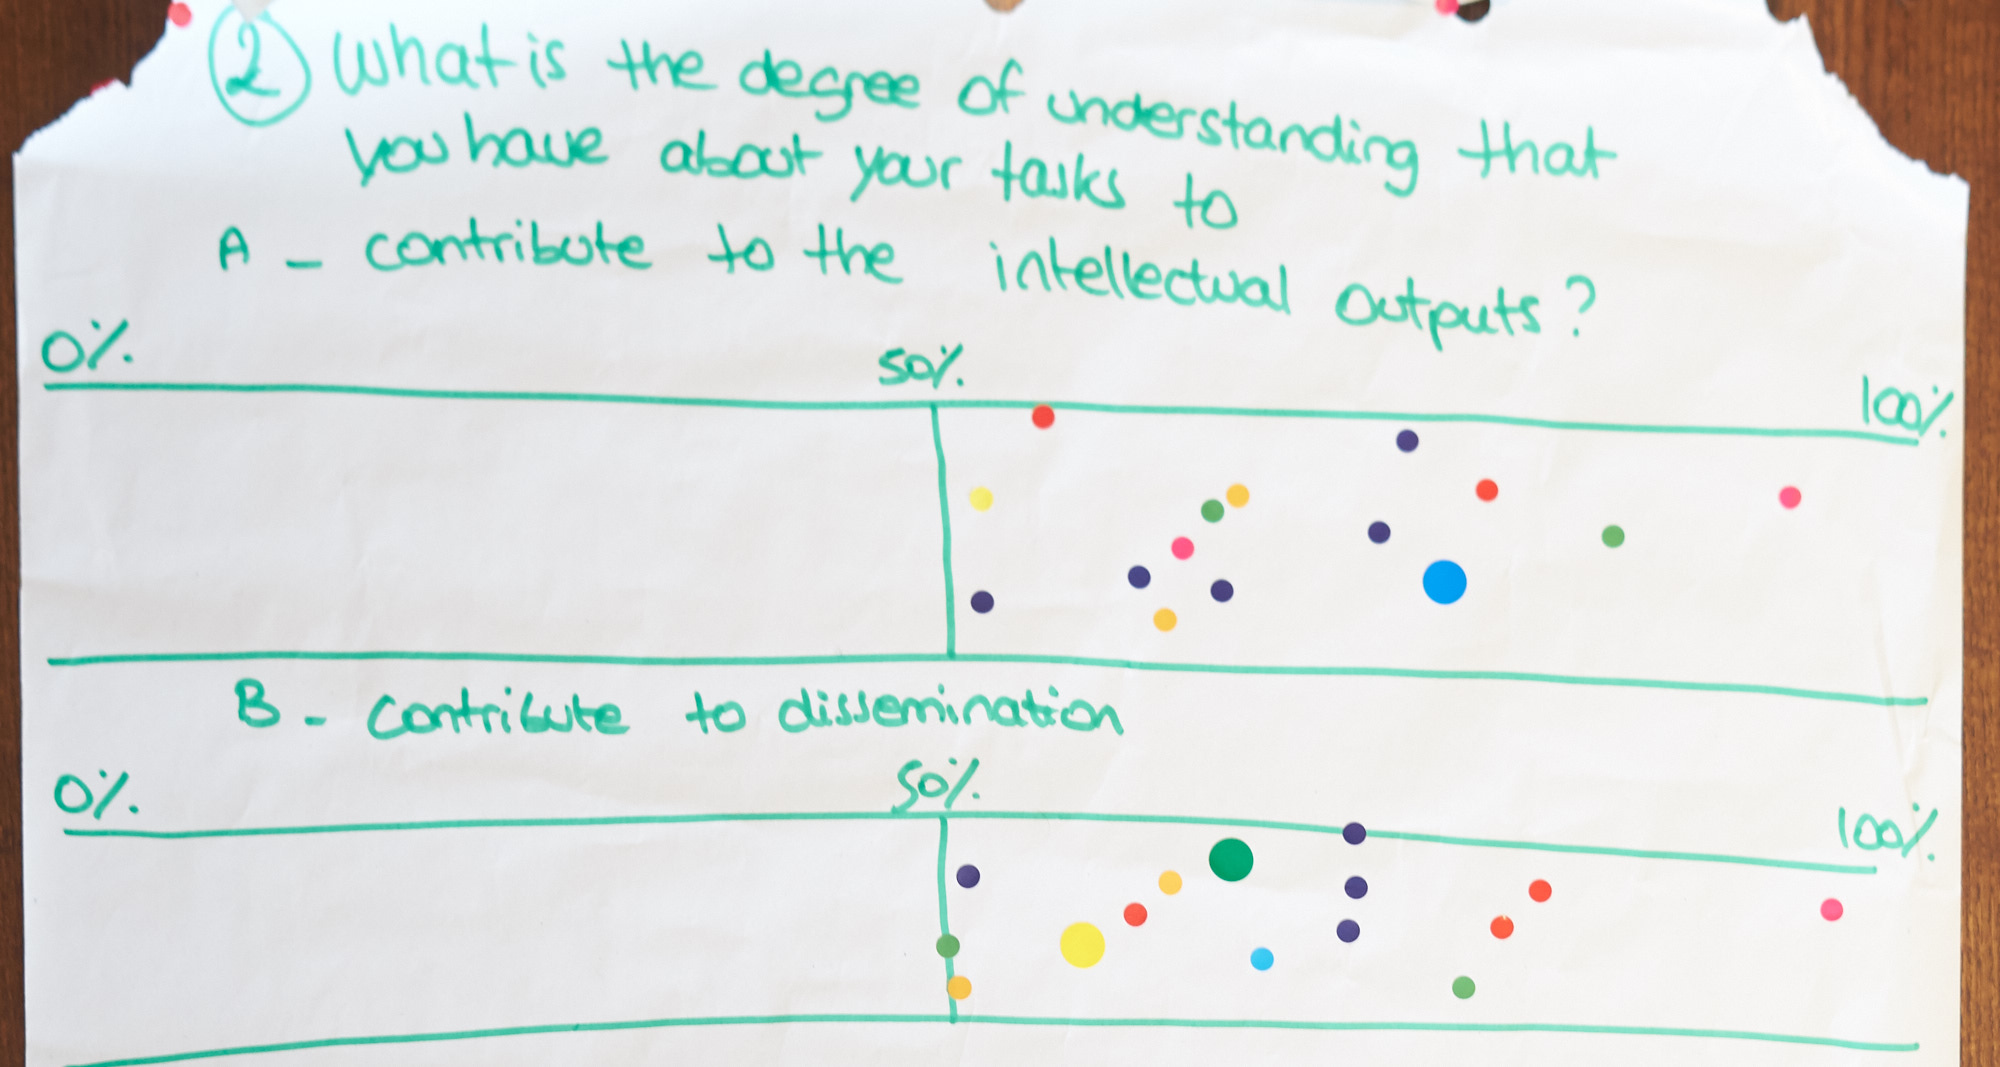 2 What is the degree of understanding that
you have about your tasks to
A - contribute to the intellectual outputs?
0% 50% 100%
B - contribute to dissemination
0% 50% 100%